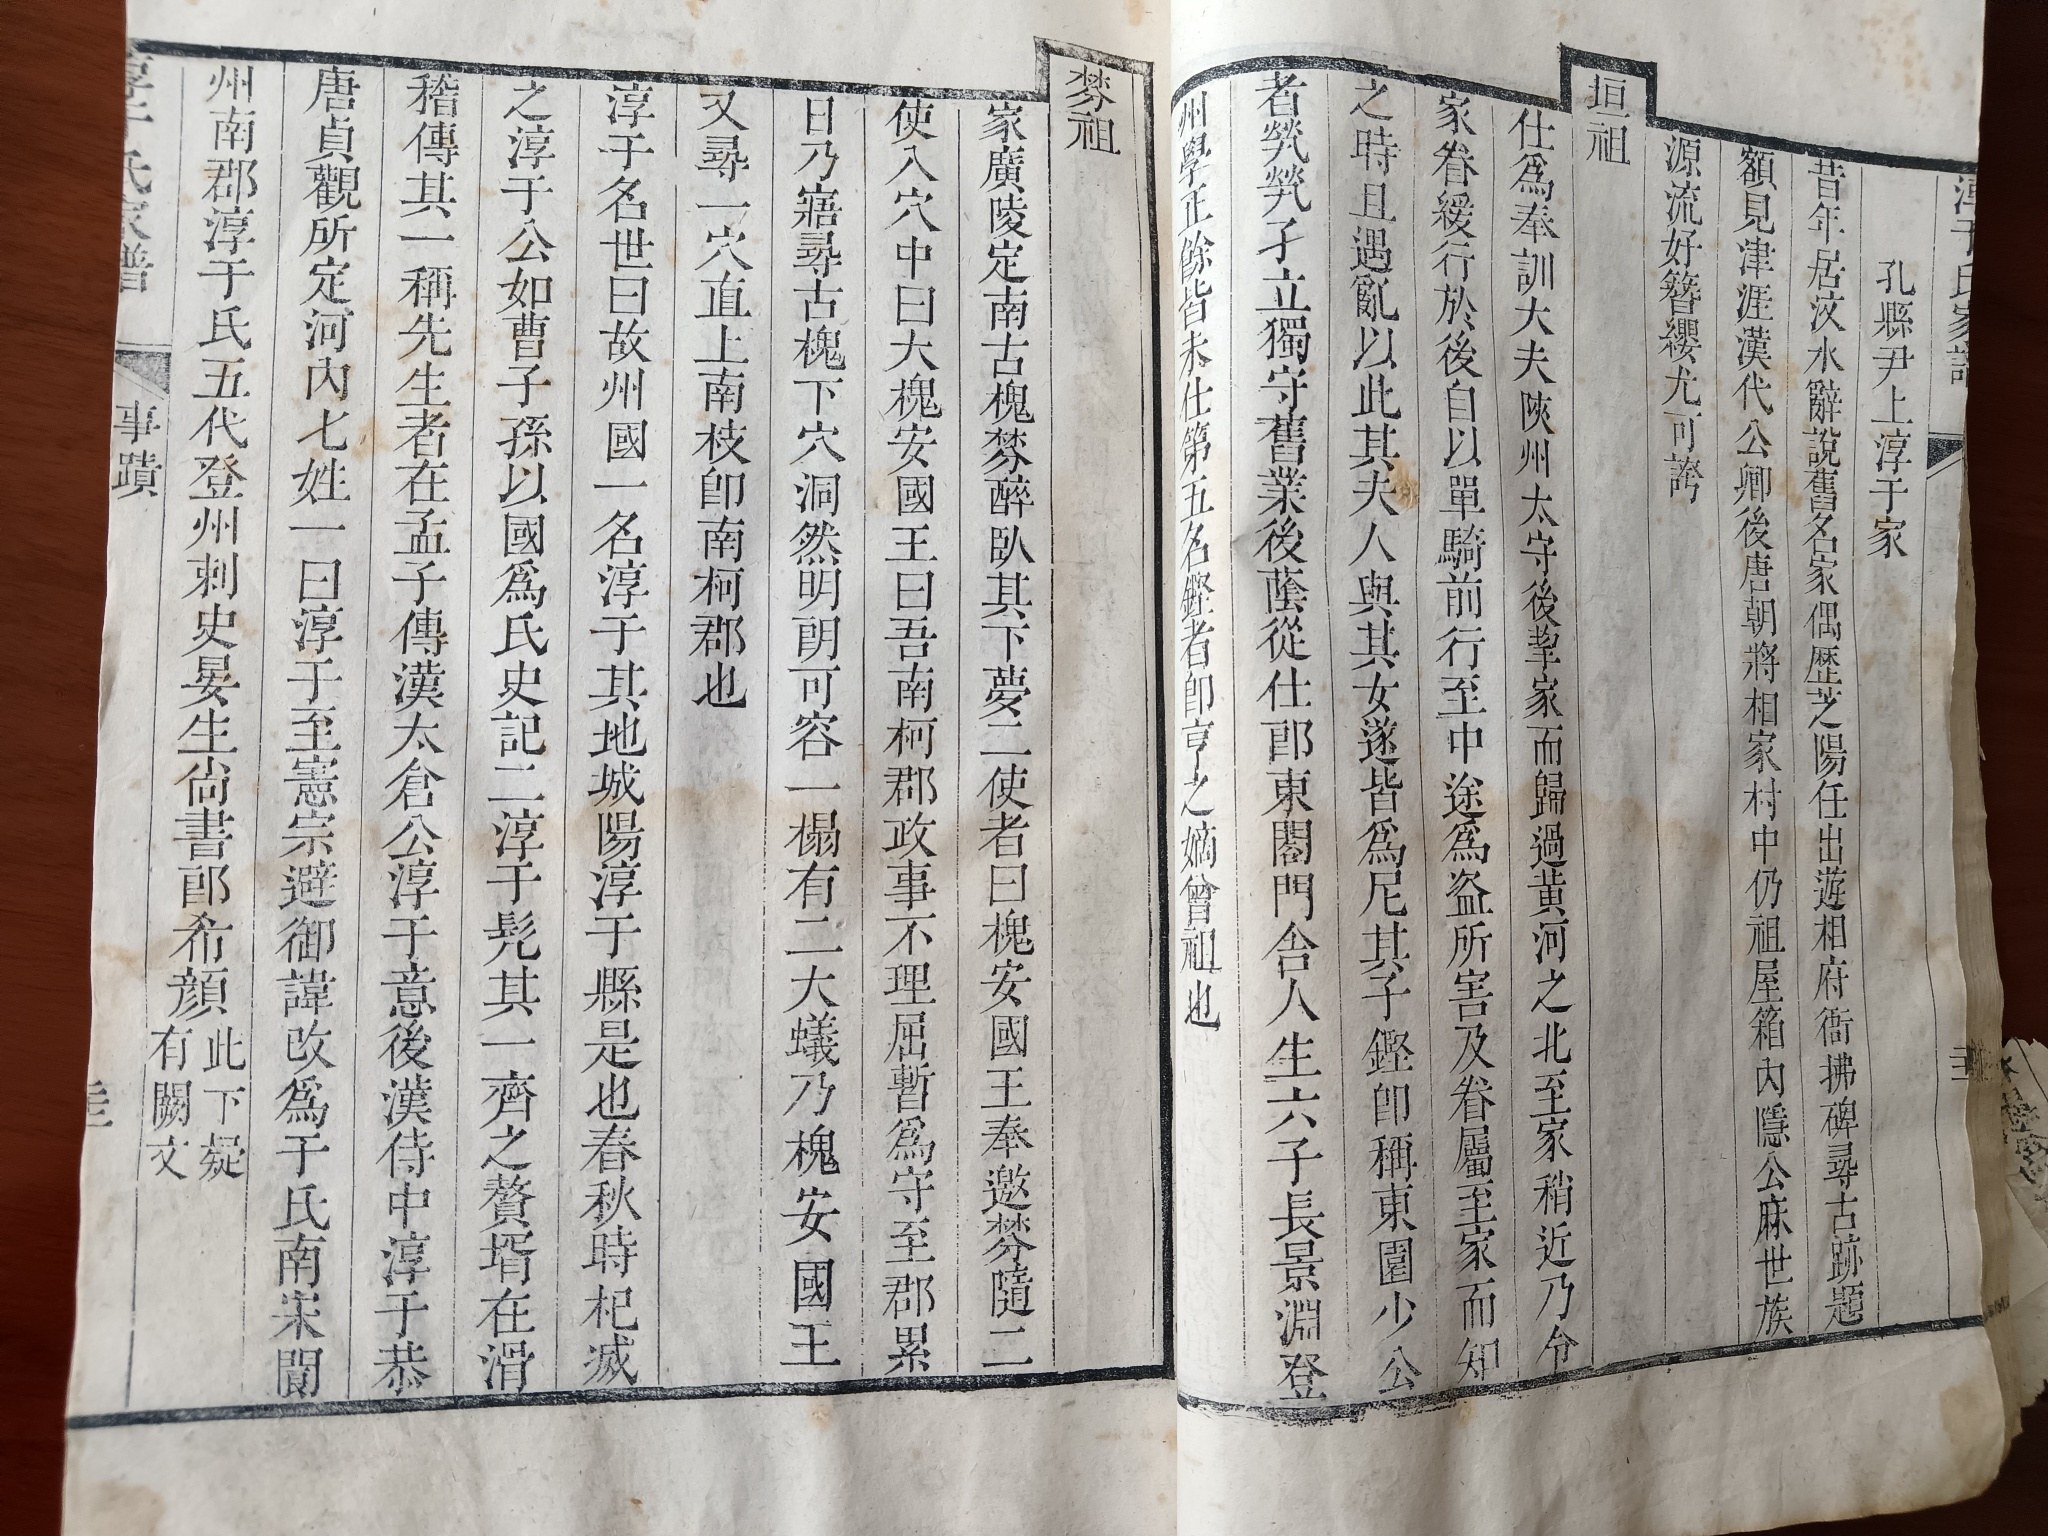 淳于氏家譜
孔縣尹上淳于家
昔年居汶水辭說舊名家偶歷芝陽任出遊相府衙拂碑尋古跡題
額見津涯漢代公卿後唐朝將相家村中仍祖屋箱內隱公麻世族
源流好簪纓尤可誇
垣祖
仕爲奉訓大夫陝州太守後挈家而歸過黄河之北至家稍近乃令
家眷緩行於後自以單騎前行至中途爲盜所害及眷屬至家而知
之時且遇亂以此其夫人與其女遂皆爲尼其子鏗即稱東園少公
者煢煢孑立獨守舊業後蔭從仕郎東閣門舍人生六子長景淵登
州學正餘皆未仕第五名鏗者即亨之嫡曾祖也
棼祖
家廣陵定南古槐棼醉臥其下夢二使者曰槐安國王奉邀棼隨二
使入穴中曰大槐安國王曰吾南柯郡政事不理屈暫爲守至郡累
日乃寤尋古槐下穴洞然明朗可容一榻有二大蟻乃槐安國王
又尋一穴直上南枝即南柯郡也
淳于名世曰故州國一名淳于其地城陽淳于縣是也春秋時杞滅
之淳于公如曹子孫以國爲氏史記二淳于髡其一齊之贅壻在滑
稽傳其一稱先生者在孟子傳漢太倉公淳于意後漢侍中淳于恭
唐貞觀所定河內七姓一曰淳于至憲宗避御諱改爲于氏南宋間
州南郡淳于氏五代登州刺史晏生尚書郎希顔
此下疑
有闕文
淳于氏家譜
事蹟